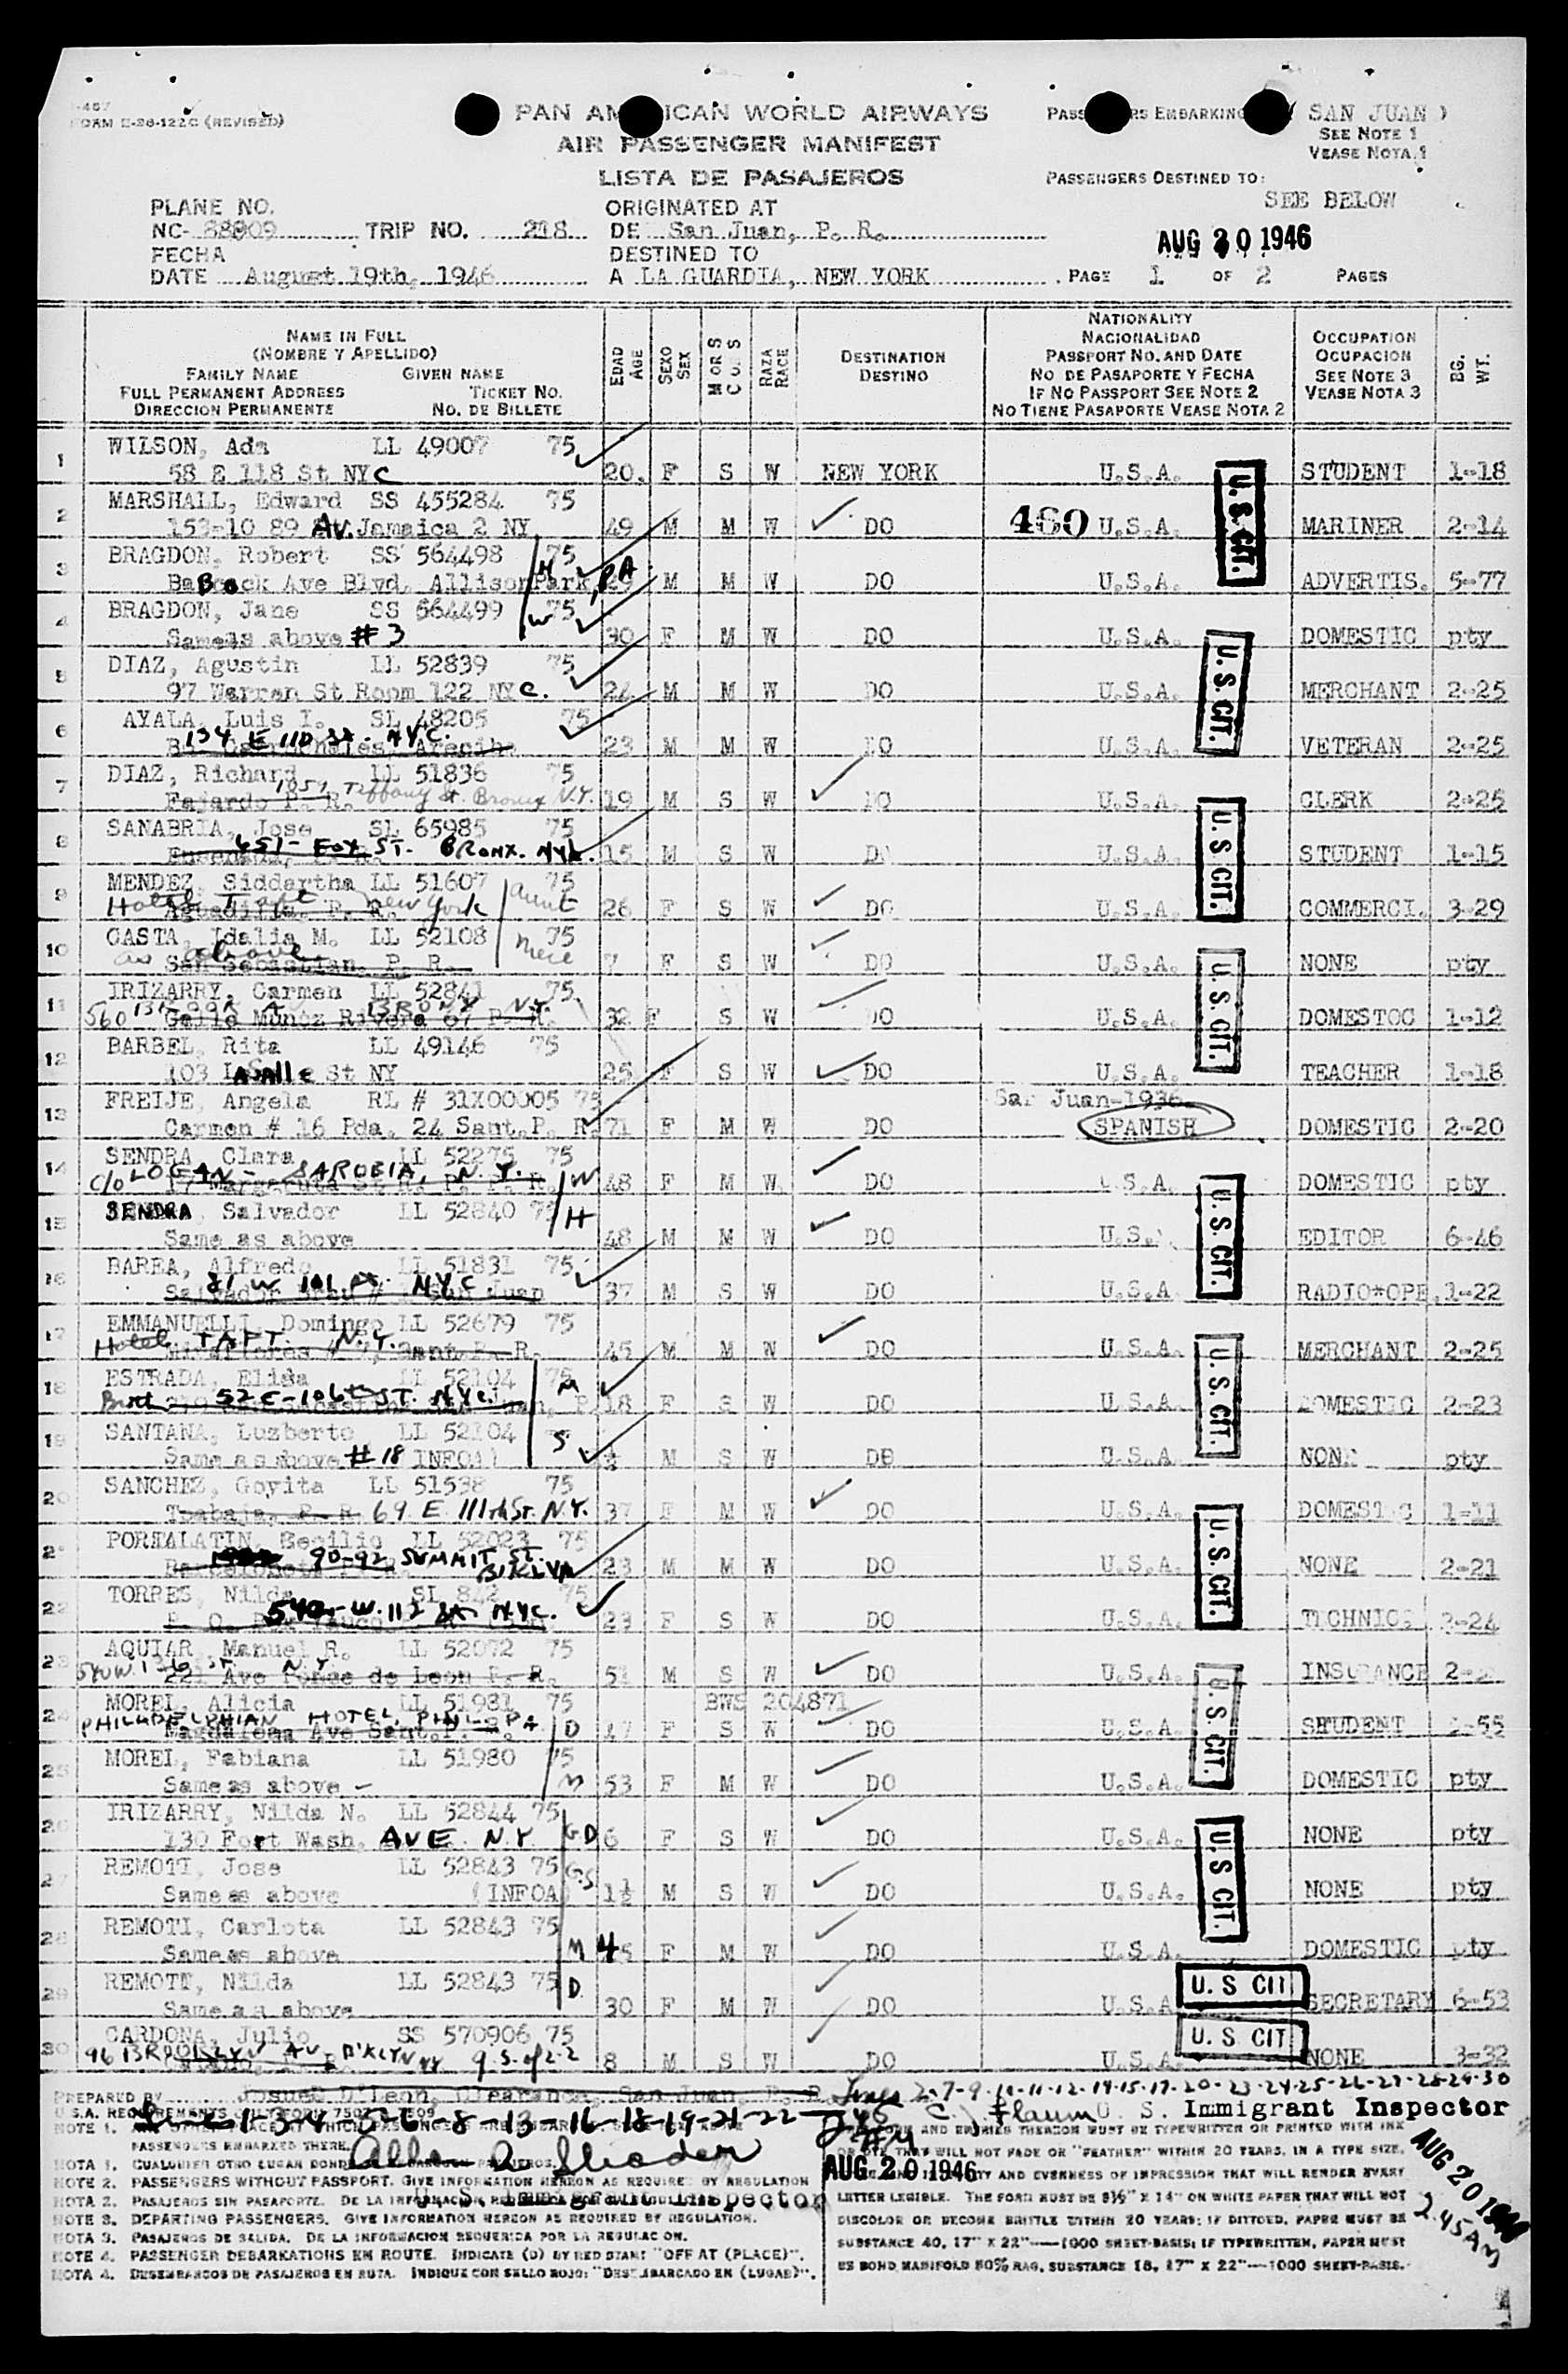 FORM E-26-122C (REVISED)
PAN AMERICAN WORLD AIRWAYS
AIR PASSENGER MANIFEST
LISTA DE PASAJEROS
PASSENGERS EMBARKING SAN JUAN )
SEE NOTE 1
VEASE NOTA 1
PASSENGERS DESTINED TO:
SEE BELOW
PLANE NO.
NC- 88909 TRIP NO. 218
FECHA
DATE August 19th, 1946
ORIGINATED AT
DE San Juan, P. R.
DESTINED TO
A LA GUARDIA, NEW YORK
AUG 20 1946
PAGE 1 OF 2 PAGES
NAME IN FULL
(NOMBRE Y APELLIDO)
FAMILY NAME GIVEN NAME
FULL PERMANENT ADDRESS TICKET NO.
DIRECCION PERMANENTE NO. DE BILLETE
EDAD AGE
SEXO SEX
M OR S C O S
RAZA RACE
DESTINATION
DESTINO
NATIONALITY
NACIONALIDAD
PASSPORT NO. AND DATE
NO. DE PASAPORTE Y FECHA
IF NO PASSPORT SEE NOTE 2
NO TIENE PASAPORTE VEASE NOTA 2
OCCUPATION
OCUPACION
SEE NOTE 3
VEASE NOTA 3
BG. WT.
1 WILSON, Ada LL 49007 75
58 E 118 St NYC 20 F S W NEW YORK U.S.A. STUDENT 1-18
2 MARSHALL, Edward SS 455284 75
153-10 89 Av. Jamaica 2 NY 49 M M W DO 460 U.S.A. MARINER 2-14
3 BRAGDON, Robert SS 564498 75 H
Babcock Ave Blvd, Allison Park, PA. 29 M M W DO U.S.A. ADVERTIS. 5-77
4 BRAGDON, Jane SS 564499 75 W
Same as above #3 30 F M W DO U.S.A. DOMESTIC pty
5 DIAZ, Agustin LL 52839 75
97 Warren St Room 122 NYC. 24 M M W DO U.S.A. MERCHANT 2-25
6 AYALA, Luis I. SL 48205 75
134 E 110 St. N.Y.C. 23 M M W DO U.S.A. VETERAN 2-25
7 DIAZ, Richard LL 51836 75
Fajardo P. R. 1057 Tiffany St. Bronx N.Y. 19 M S W DO U.S.A. CLERK 2-25
8 SANABRIA, Jose SL 65985 75
651- FOX ST. BRONX. NYC. 15 M S W DO U.S.A. STUDENT 1-15
9 MENDEZ, Siddartha LL 51607 75 aunt
Hotel Taft New York Aguadilla, P. R. 26 F S W DO U.S.A. COMMERCI. 3-29
10 CASTA, Idalia M. LL 52108 75 niece
as above San Sebastian, P. R. 7 F S W DO U.S.A. NONE pty
11 IRIZARRY, Carmen LL 52841 75
560 BRONX N.Y. Calle Munoz Rivera 67 P. R. 32 F S W DO U.S.A. DOMESTOC 1-12
12 BARBEL, Rita LL 49146 75
103 LaSalle St NY 25 F S W DO U.S.A. TEACHER 1-18
13 FREIJE, Angela RL # 31X00005 75 San Juan-1936
Carmen # 16 Pda. 24 Sant. P. R. 71 F M W DO SPANISH DOMESTIC 2-20
14 SENDRA, Clara LL 52275 75
c/o LOGAN- SAROBIA, N.Y. W 48 F M W DO U.S.A. DOMESTIC pty
15 SENDRA, Salvador LL 52840 75 H
Same as above 48 M M W DO U.S.A. EDITOR 6-46
16 BAREA, Alfredo LL 51831 75
21 W 101 St. N.Y.C San Juan 37 M S W DO U.S.A. RADIO*OPE. 1-22
17 EMMANUELLI, Domingo LL 52679 75
Hotel TAFT. N.Y. 45 M M W DO U.S.A. MERCHANT 2-25
18 ESTRADA, Elisa LL 52104 75 M
52 E-106th ST. N.Y.C. 18 F S W DO U.S.A. DOMESTIC 2-23
19 SANTANA, Luzberto LL 52104 S.
Same as above #18 INFOA) M S W DO U.S.A. NONE pty
20 SANCHEZ, Goyita LL 51538 75
69 E 111th St. N.Y. 37 F M W DO U.S.A. DOMESTIC 1-11
21 PORTALATIN, Basilio LL 52023 75
90-92 SUMMIT ST. BKLYN 23 M M W DO U.S.A. NONE 2-21
22 TORRES, Nilda SL 842 75
540-W. 112 St N.Y.C. 23 F S W DO U.S.A. TECHNIC. 3-24
23 AQUIAR, Manuel R. LL 52072 75
540 W. 136 ST. N.Y. 221 Ave Ponce de Leon P. R. 51 M S W DO U.S.A. INSURANCE
24 MOREL, Alicia LL 51981 75 BWS 204871
PHILADELPHIAN HOTEL, PHILA PA. Magdalena Ave Sant. P. R. D 17 F S W DO U.S.A. STUDENT 2-55
25 MOREL, Fabiana LL 51980 75 M
Same as above - 53 F M W DO U.S.A. DOMESTIC pty
26 IRIZARRY, Nilda N. LL 52844 75
130 Fort Wash. AVE. N.Y. G.D 6 F S W DO U.S.A. NONE pty
27 REMOTI, Jose LL 52843 75 G.S
Same as above (INFOA) 1½ M S W DO U.S.A. NONE pty
28 REMOTI, Carlota LL 52843 75
Same as above M 45 F M W DO U.S.A. DOMESTIC pty
29 REMOTI, Nilda LL 52843 75 D.
Same as above 30 F M W DO U.S.A. SECRETARY 6-53
30 CARDONA, Julio SS 570906 75
96 BROOKLYN AV. B'KLYN NY 8 M S W DO U.S.A. NONE 3-32
U.S. CIT.
U.S. CIT.
U.S. CIT.
U.S. CIT.
U.S. CIT.
U.S. CIT.
U.S. CIT.
U.S. CIT.
U.S. CIT.
U. S CIT
U. S CIT
PREPARED BY Josue D'Leon, Clearance, San Juan, P. R.
Lines 2-7-9-10-11-12-14-15-17-20-23-24-25-26-27-28-29-30
1-3-4-5-6-8-13-16-18-19-21-22
U. S. Immigrant Inspector
U. S. Immigrant Inspector
AUG 20 1946
AUG 20 1946
2.45 AM
PASSENGERS EMBARKED THERE.
NOTE 2. PASSENGERS WITHOUT PASSPORT. GIVE INFORMATION HEREON AS REQUIRED BY REGULATION
NOTA 2. PASAJEROS SIN PASAPORTE. DE LA INFORMACION
NOTE 3. DEPARTING PASSENGERS. GIVE INFORMATION HEREON AS REQUIRED BY REGULATION.
NOTA 3. PASAJEROS DE SALIDA. DE LA INFORMACION REQUERIDA POR LA REGULACION.
NOTE 4. PASSENGER DEBARKATIONS EN ROUTE. INDICATE (D) BY RED STAMP "OFF AT (PLACE)".
NOTA 4. DESEMBARCOS DE PASAJEROS EN RUTA. INDIQUE CON SELLO ROJO: "DESEMBARCADO EN (LUGAR)".
AND ENTRIES THEREON MUST BE TYPEWRITTEN OR PRINTED WITH INK
OR DYE THAT WILL NOT FADE OR "FEATHER" WITHIN 20 YEARS, IN A TYPE SIZE,
AND EVENNESS OF IMPRESSION THAT WILL RENDER EVERY
LETTER LEGIBLE. THE FORM MUST BE 8½" X 14" ON WHITE PAPER THAT WILL NOT
DISCOLOR OR BECOME BRITTLE WITHIN 20 YEARS; IF DITTOED, PAPER MUST BE
SUBSTANCE 40, 17" X 22"—1000 SHEET-BASIS; IF TYPEWRITTEN, PAPER MUST
BE BOND MANIFOLD 50% RAG, SUBSTANCE 18, 17" X 22"—1000 SHEET-BASIS.